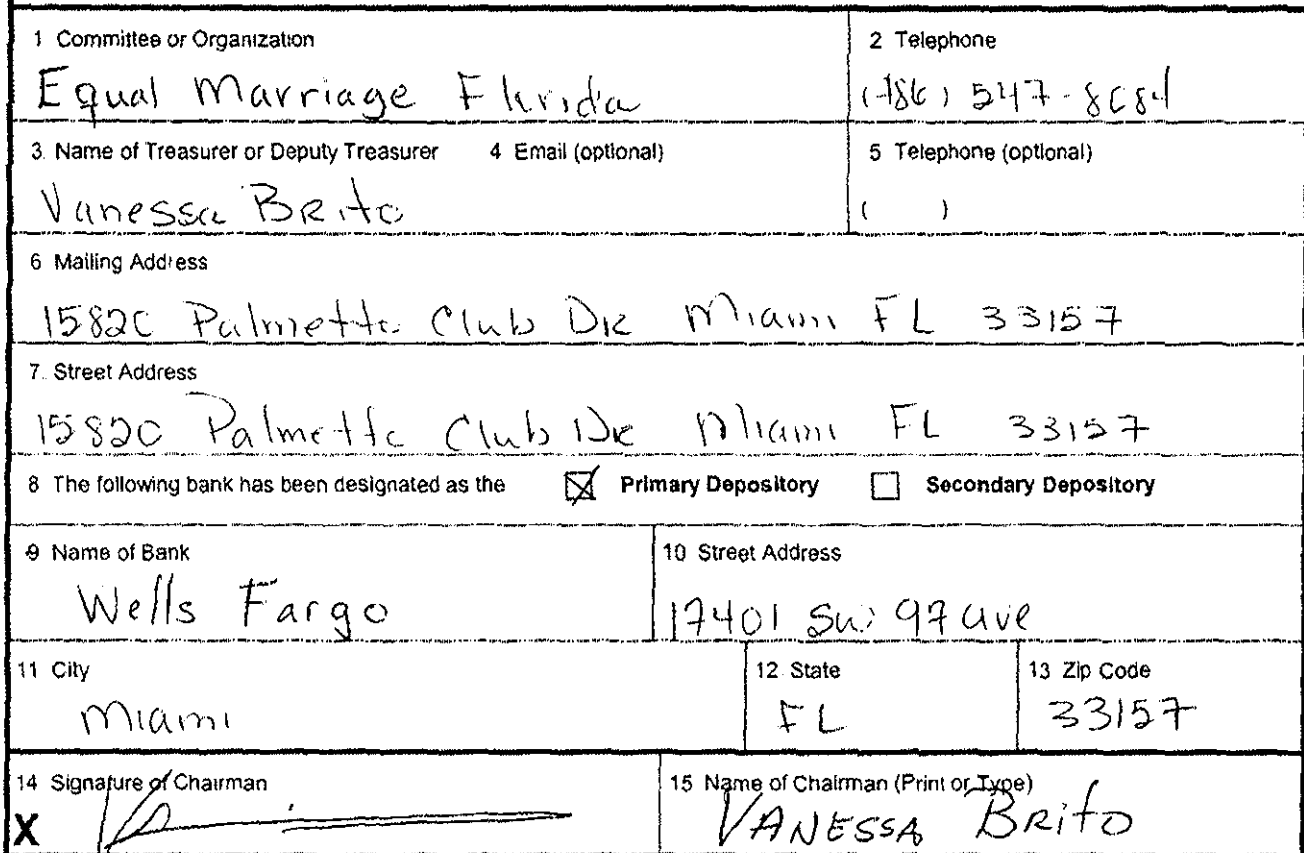 1 Committee or Organization 2 Telephone
Equal Marriage Florida (786) 547-8084
3. Name of Treasurer or Deputy Treasurer 4 Email (optional) 5 Telephone (optional)
Vanessa BRito ( )
6 Mailing Address
15820 Palmetto Club DR Miami FL 33157
7. Street Address
15820 Palmetto Club DR Miami FL 33157
8 The following bank has been designated as the Primary Depository Secondary Depository
9 Name of Bank 10 Street Address
Wells Fargo 17401 SW 97 ave
11 City 12 State 13 Zip Code
Miami FL 33157
14 Signature of Chairman 15 Name of Chairman (Print or Type)
X VANESSA BRitO